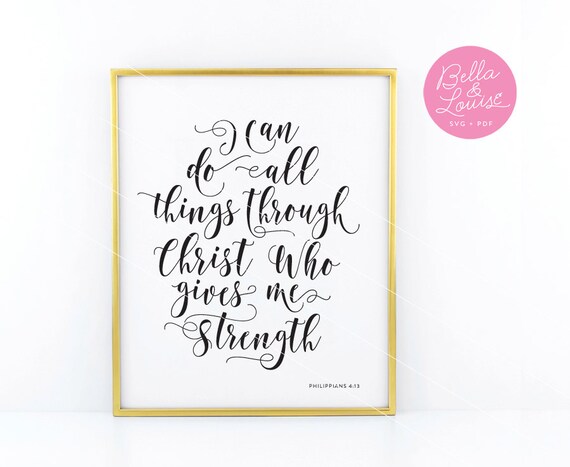 I can
do all
things through
Christ Who
gives me
strength
PHILIPPIANS 4:13
Bella
&
Louise
SVG • PDF